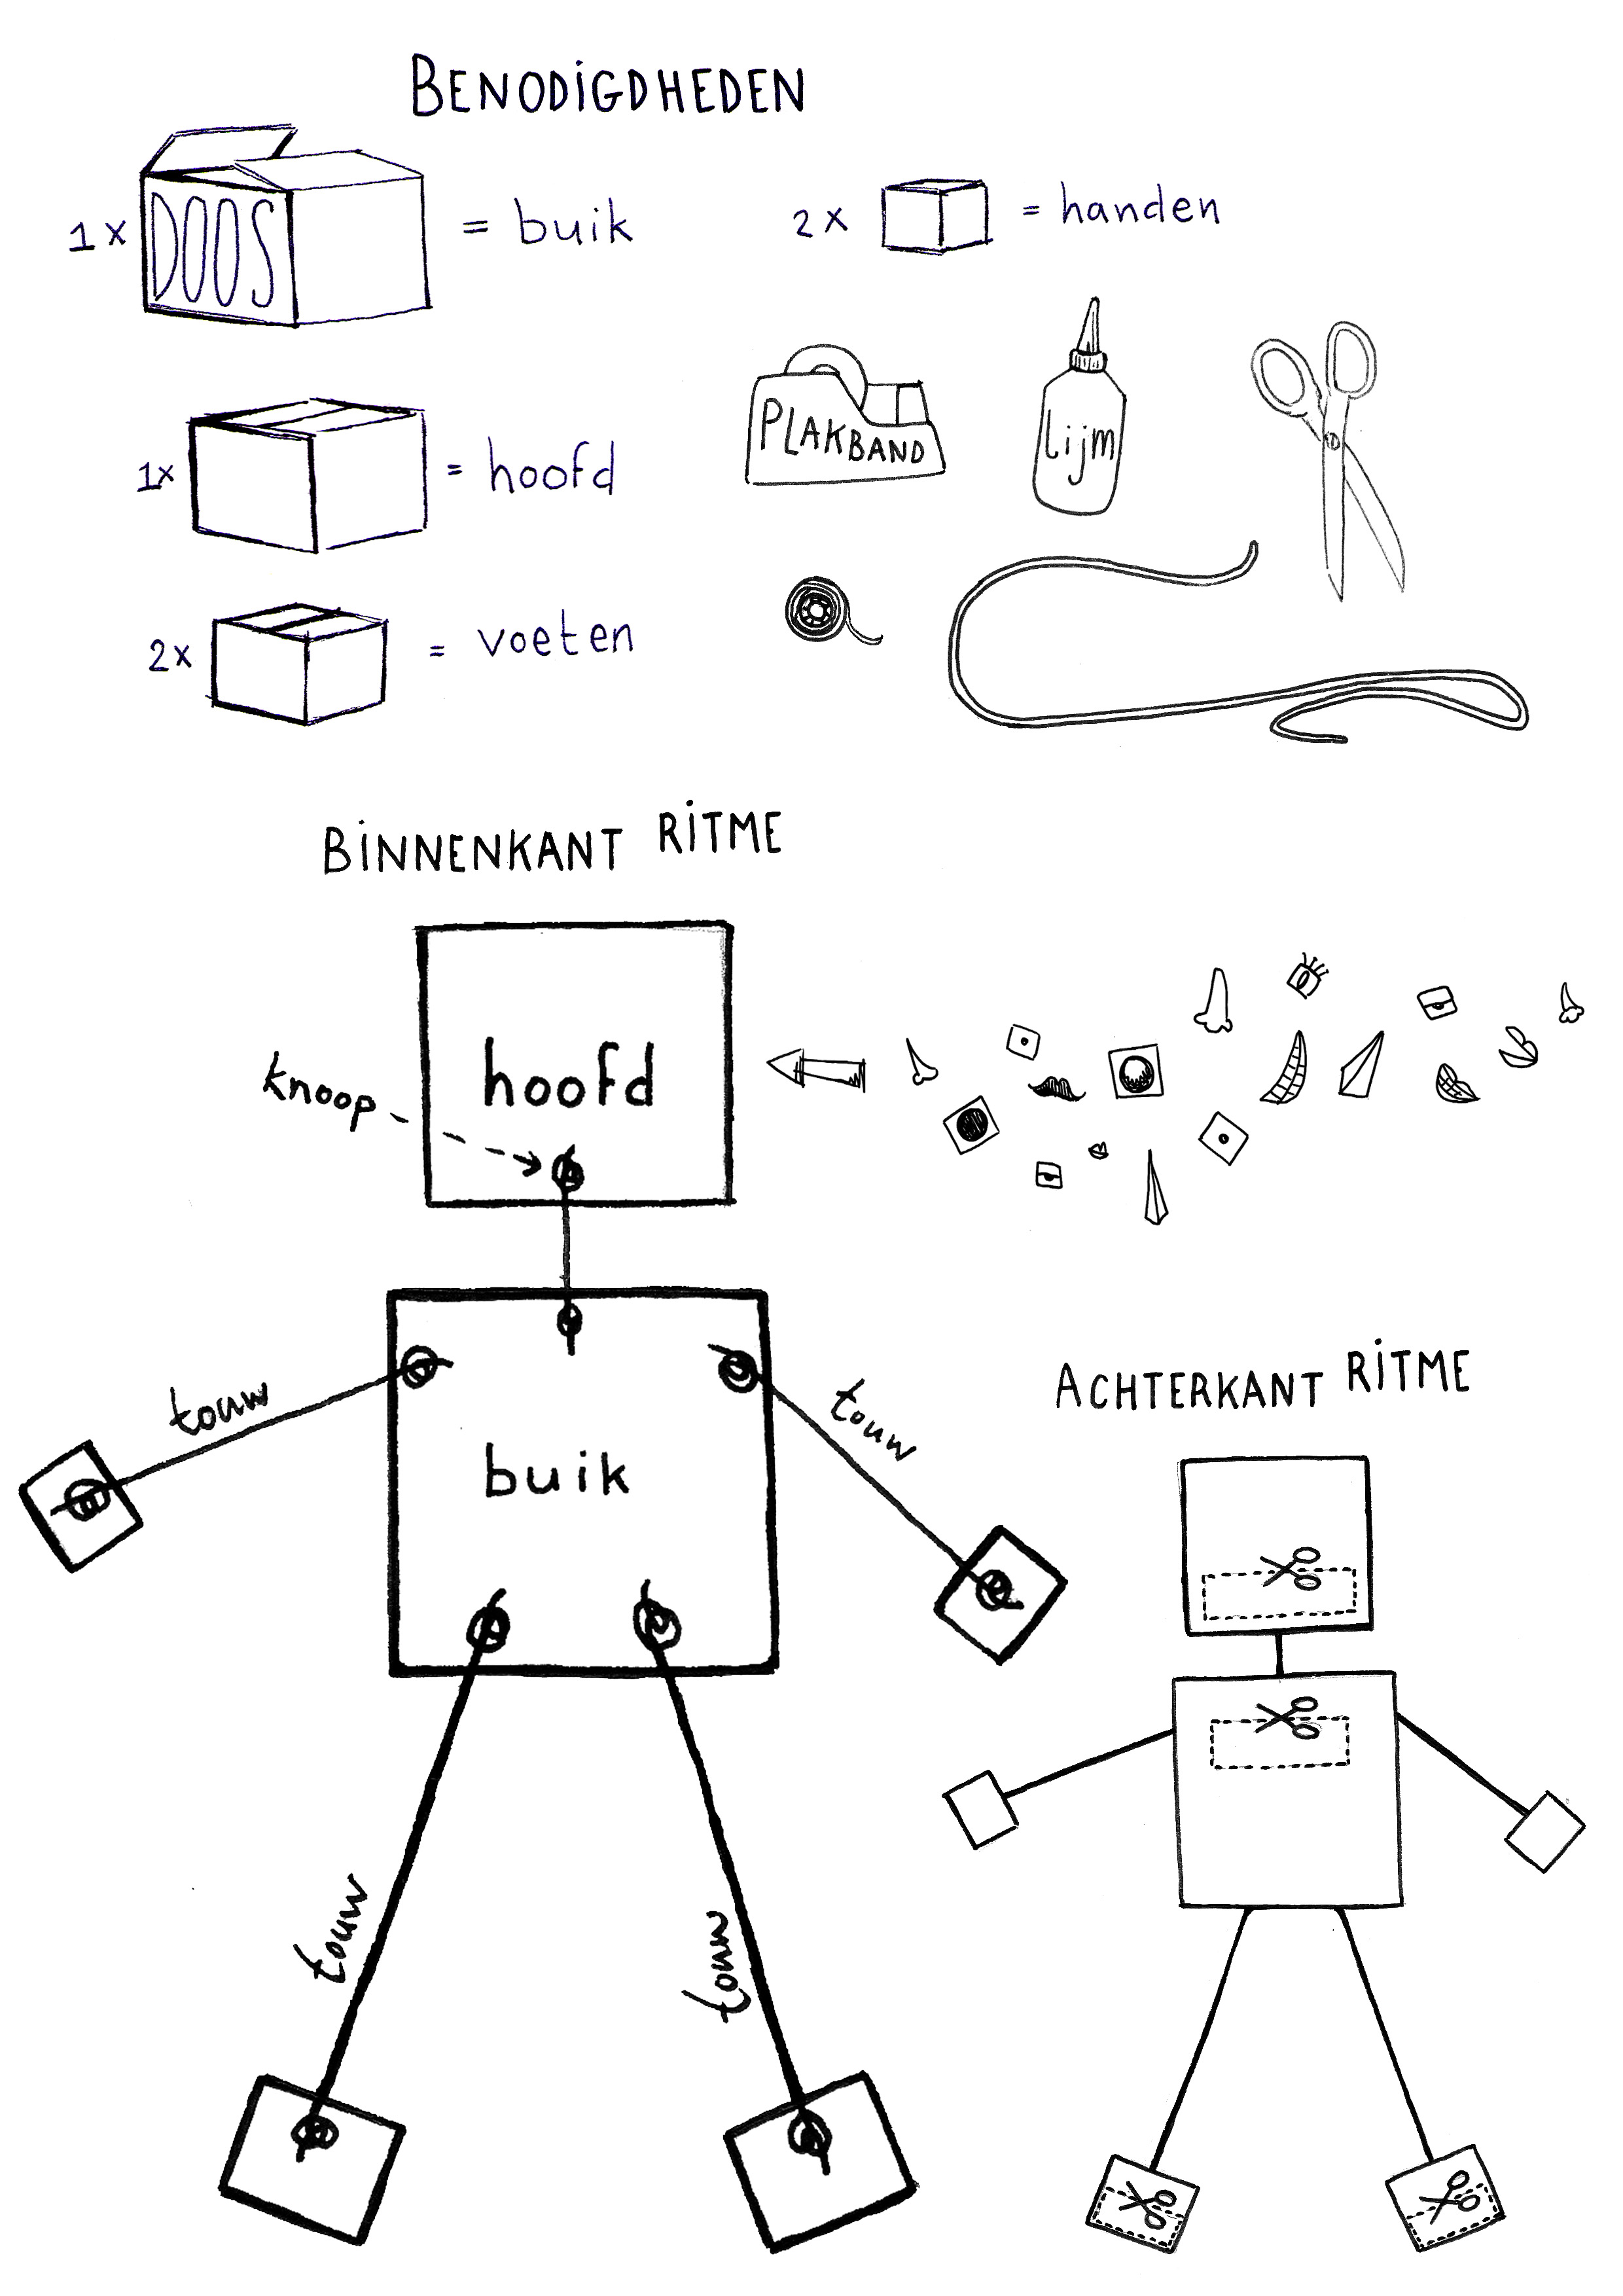 BENODIGDHEDEN
1x DOOS = buik
2x = handen
PLAKBAND
lijm
1x = hoofd
2x = voeten
BINNENKANT RITME
hoofd
knoop
touw
touw
buik
ACHTERKANT RITME
touw
touw